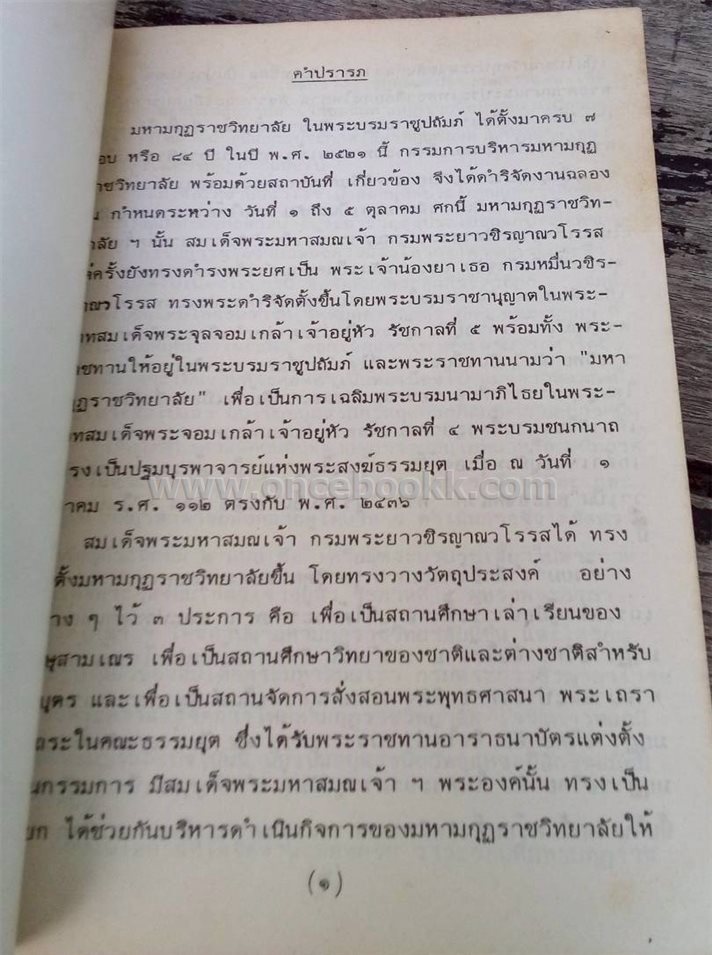 คำปรารภ
มหามกุฏราชวิทยาลัย ในพระบรมราชูปถัมภ์ ได้ตั้งมาครบ ๗
อบ หรือ ๘๔ ปี ในปี พ.ศ. ๒๕๒๑ นี้ กรรมการบริหารมหามกุฏ
าชวิทยาลัย พร้อมด้วยสถาบันที่ เกี่ยวข้อง จึงได้ดำริจัดงานฉลอง
น กำหนดระหว่าง วันที่ ๑ ถึง ๕ ตุลาคม ศกนี้ มหามกุฏราชวิท-
าลัย ฯ นั้น สมเด็จพระมหาสมณเจ้า กรมพระยาวชิรญาณวโรรส
ครั้งยังทรงดำรงพระยศเป็น พระเจ้าน้องยาเธอ กรมหมื่นวชิร-
าณวโรรส ทรงพระดำริจัดตั้งขึ้นโดยพระบรมราชานุญาตในพระ-
าทสมเด็จพระจุลจอมเกล้าเจ้าอยู่หัว รัชกาลที่ ๕ พร้อมทั้ง พระ-
าชทานให้อยู่ในพระบรมราชูปถัมภ์ และพระราชทานนามว่า "มหา
กุฏราชวิทยาลัย" เพื่อเป็นการเฉลิมพระบรมนามาภิไธยในพระ-
าทสมเด็จพระจอมเกล้าเจ้าอยู่หัว รัชกาลที่ ๔ พระบรมชนกนาถ
รงเป็นปฐมบุรพาจารย์แห่งพระสงฆ์ธรรมยุต เมื่อ ณ วันที่ ๑
าคม ร.ศ. ๑๑๒ ตรงกับ พ.ศ. ๒๔๓๖
www.oncebookk.com
สมเด็จพระมหาสมณเจ้า กรมพระยาวชิรญาณวโรรสได้ ทรง
ตั้งมหามกุฏราชวิทยาลัยขึ้น โดยทรงวางวัตถุประสงค์ อย่าง
าง ๆ ไว้ ๓ ประการ คือ เพื่อเป็นสถานศึกษาเล่าเรียนของ
ษุสามเณร เพื่อเป็นสถานศึกษาวิทยาของชาติและต่างชาติสำหรับ
บุตร และเพื่อเป็นสถานจัดการสั่งสอนพระพุทธศาสนา พระเถรา
ถระในคณะธรรมยุต ซึ่งได้รับพระราชทานอาราธนาบัตรแต่งตั้ง
นกรรมการ มีสมเด็จพระมหาสมณเจ้า ฯ พระองค์นั้น ทรงเป็น
ยก ได้ช่วยกันบริหารดำเนินกิจการของมหามกุฏราชวิทยาลัยให้
(๑)